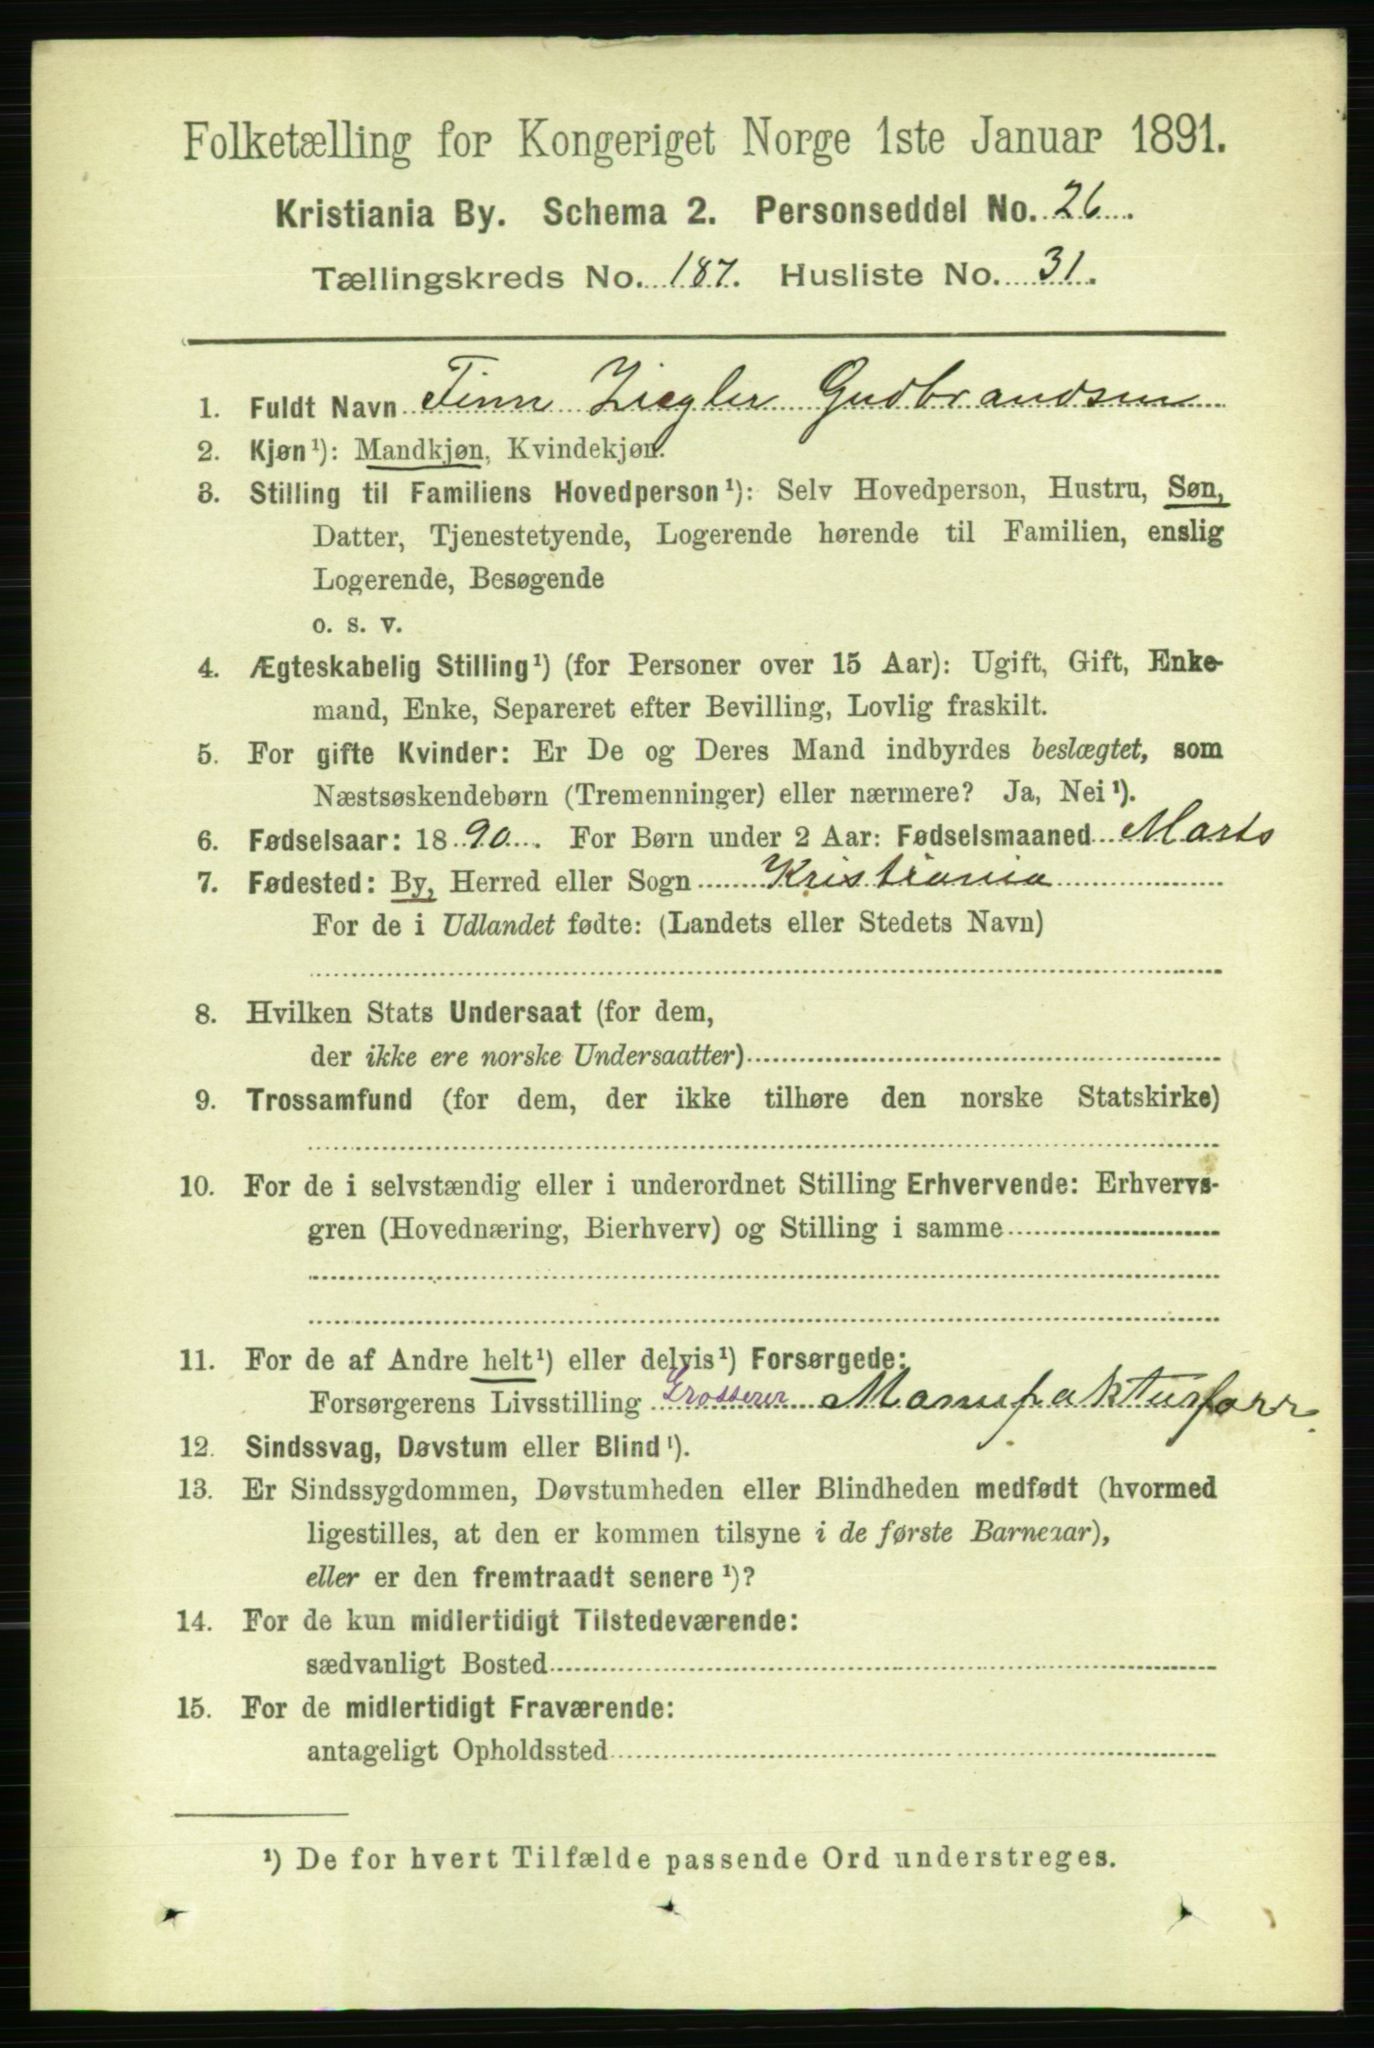 Folketælling for Kongeriget Norge 1ste Januar 1891.
Kristiania By. Schema 2. Personseddel No. 26.
Tællingskreds No. 187. Husliste No. 31.
1. Fuldt Navn Finn Ziegler Gudbrandsen
2. Kjøn¹): Mandkjøn, Kvindekjøn.
3. Stilling til Familiens Hovedperson¹): Selv Hovedperson, Hustru, Søn,
Datter, Tjenestetyende, Logerende hørende til Familien, enslig
Logerende, Besøgende
o. s. v.
4. Ægteskabelig Stilling¹) (for Personer over 15 Aar): Ugift, Gift, Enke-
mand, Enke, Separeret efter Bevilling, Lovlig fraskilt.
5. For gifte Kvinder: Er De og Deres Mand indbyrdes beslægtet, som
Næstsøskendebørn (Tremenninger) eller nærmere? Ja, Nei¹).
6. Fødselsaar: 1890. For Børn under 2 Aar: Fødselsmaaned Marts
7. Fødested: By, Herred eller Sogn Kristiania
For de i Udlandet fødte: (Landets eller Stedets Navn)
8. Hvilken Stats Undersaat (for dem,
der ikke ere norske Undersaatter)
9. Trossamfund (for dem, der ikke tilhøre den norske Statskirke)
10. For de i selvstændig eller i underordnet Stilling Erhvervende: Erhvervs-
gren (Hovednæring, Bierhverv) og Stilling i samme
11. For de af Andre helt¹) eller delvis¹) Forsørgede:
Forsørgerens Livsstilling Grosserer Manufakturforr.
12. Sindssvag, Døvstum eller Blind¹).
13. Er Sindssygdommen, Døvstumheden eller Blindheden medfødt (hvormed
ligestilles, at den er kommen tilsyne i de første Barneaar),
eller er den fremtraadt senere¹)?
14. For de kun midlertidigt Tilstedeværende:
sædvanligt Bosted
15. For de midlertidigt Fraværende:
antageligt Opholdssted
¹) De for hvert Tilfælde passende Ord understreges.